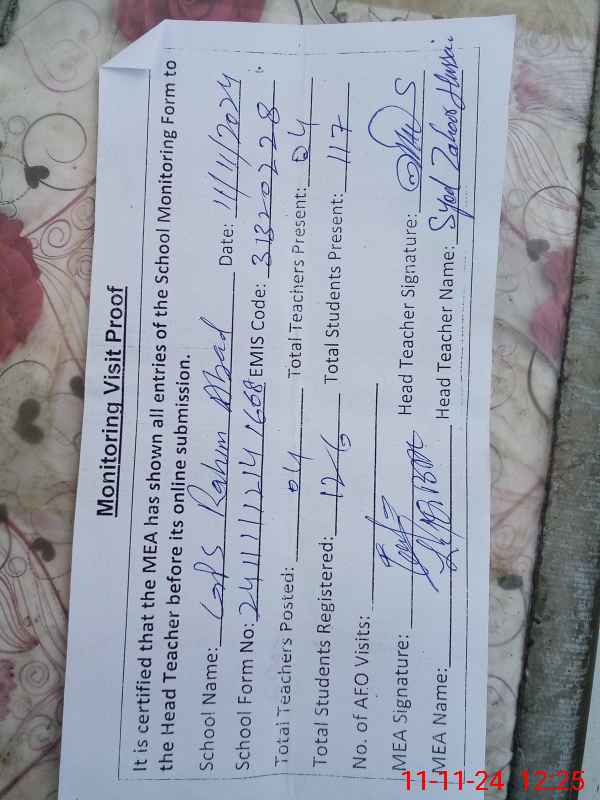 Monitoring Visit Proof
It is certified that the MEA has shown all entries of the School Monitoring Form to
the Head Teacher before its online submission.
School Name: GPS Rahim Abad Date: 11/11/2024
School Form No: EMIS Code: 31320228
Total Teachers Posted: 04 Total Teachers Present: 04
Total Students Registered: 126 Total Students Present: 117
No. of AEO Visits:
MEA Signature: Head Teacher Signature:
MEA Name: Head Teacher Name: Syed Zahoor Hussain
11-11-24 12:25